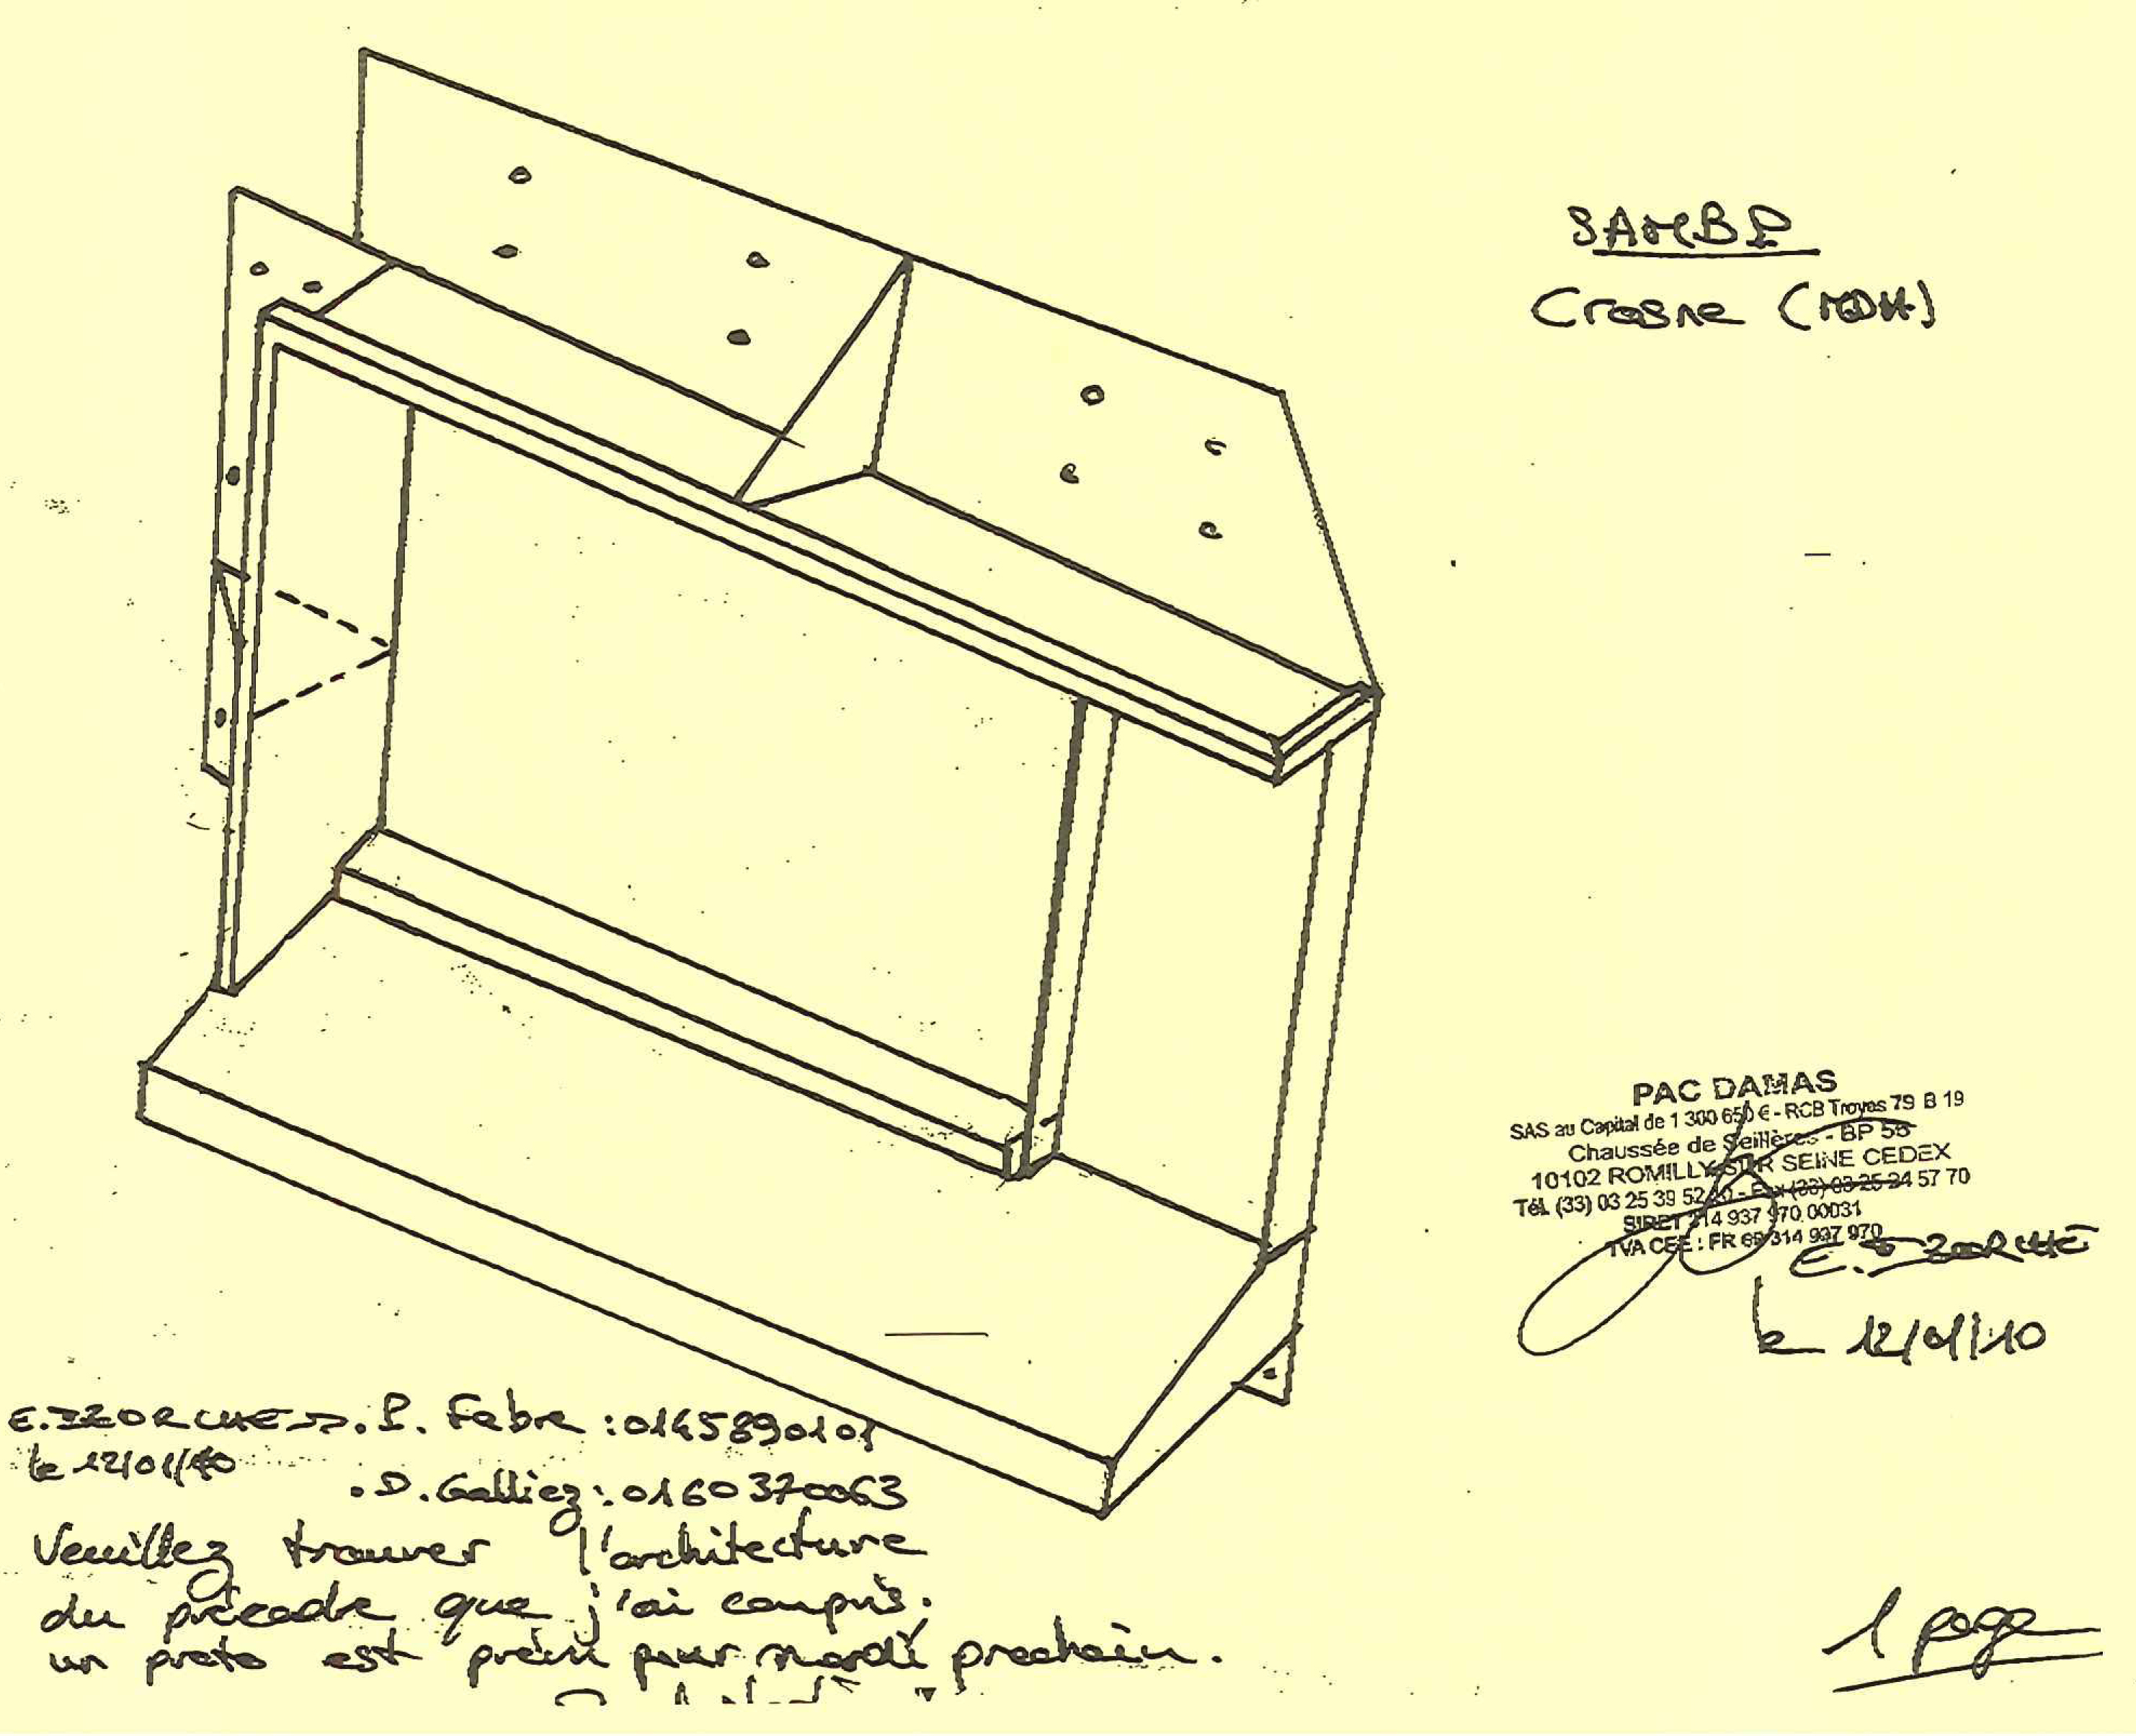 SAMBP
Crosne (MDH)
PAC DAMAS
SAS au Capital de 1 300 650 € - RCB Troyes 79 B 19
Chaussée de Seillères - BP 58
10102 ROMILLY SUR SEINE CEDEX
Tél. (33) 03 25 39 52 - Fax (33) 03 25 24 57 70
SIRET 314 937 970 00031
TVA CEE : FR 314 937 970
le 12/01/10
. P. Fabre : 0145890101
le 12/01/10
. D. Galliez : 0160370063
Veuillez trouver l'architecture
du précadre que j'ai compris.
un proto est prévu pour mardi prochain.
1 page